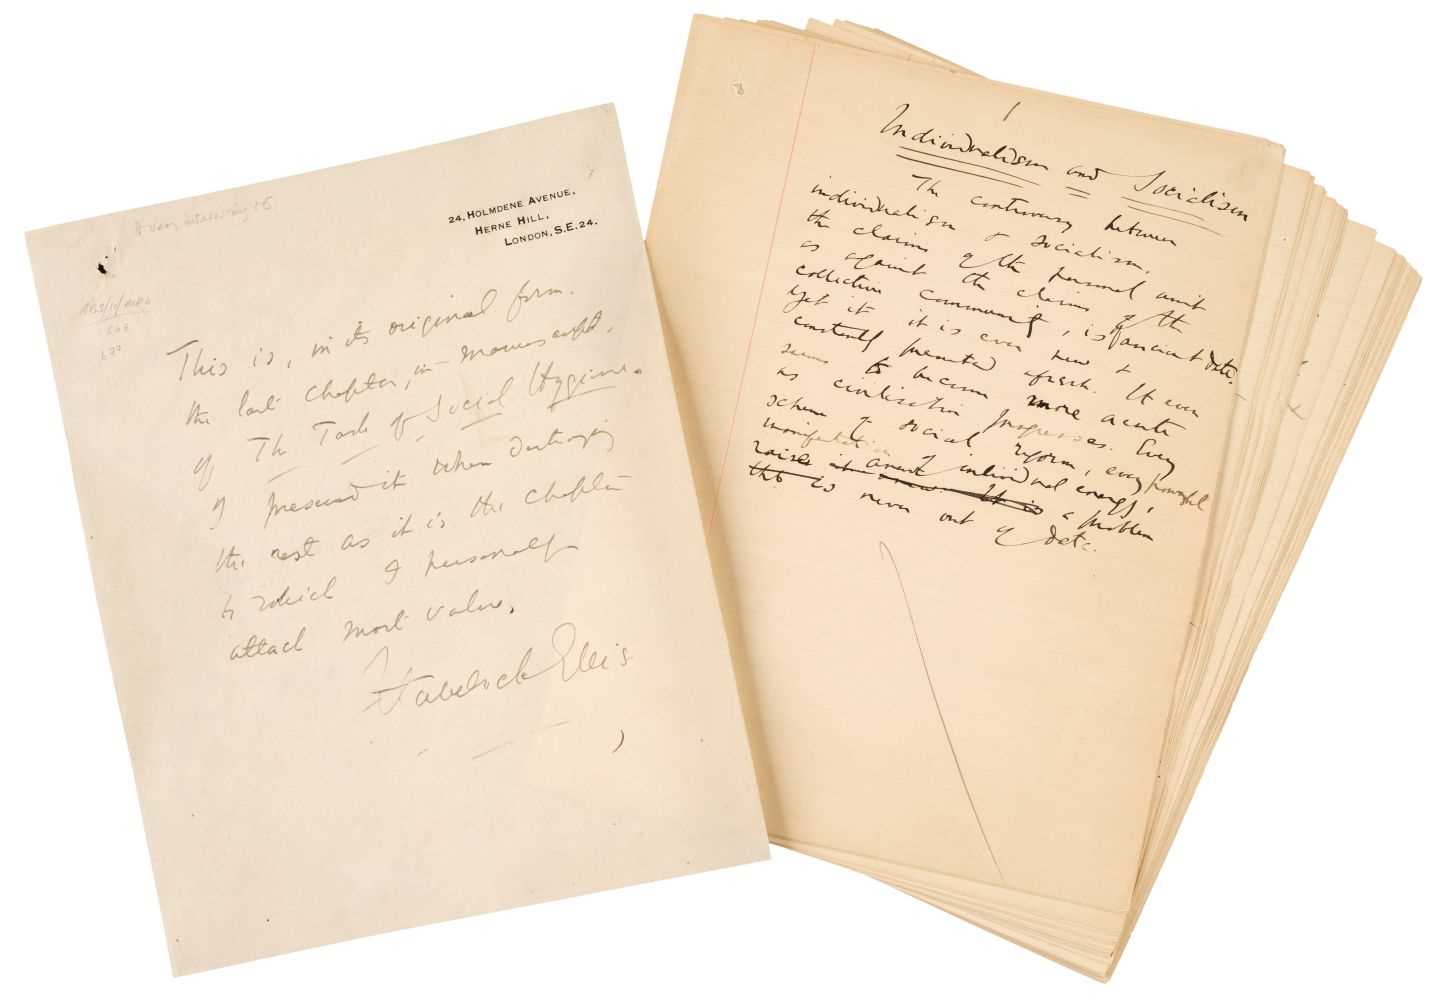 24, HOLMDENE AVENUE,
HERNE HILL,
LONDON, S.E. 24.
This is, in its original form,
the last chapter, in manuscript,
of The Task of Social Hygiene.
I preserved it when destroying
the rest as it is the chapter
to which I personally
attach most value.
Havelock Ellis
1
Individualism and Socialism
The controversy between
individualism & socialism,
the claims of the personal unit
as against the claims of the
collective community, is of ancient date.
Yet it is ever new &
constantly presented afresh. It even
seems to become more acute
as civilisation progresses. Every
scheme of social reform, every powerful
manifestation of individual energy,
raises anew a problem
that is never out of date.